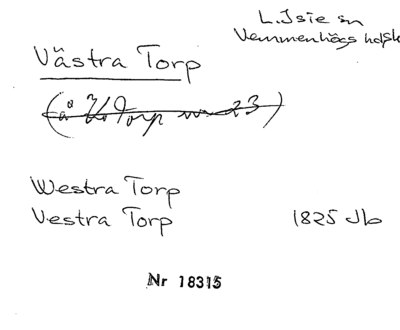 L. Isie sn
Vemmenhögs hdsk
Västra Torp
(å V Torp nr 23)
Westra Torp
Vestra Torp 1825 Jb
Nr 18315